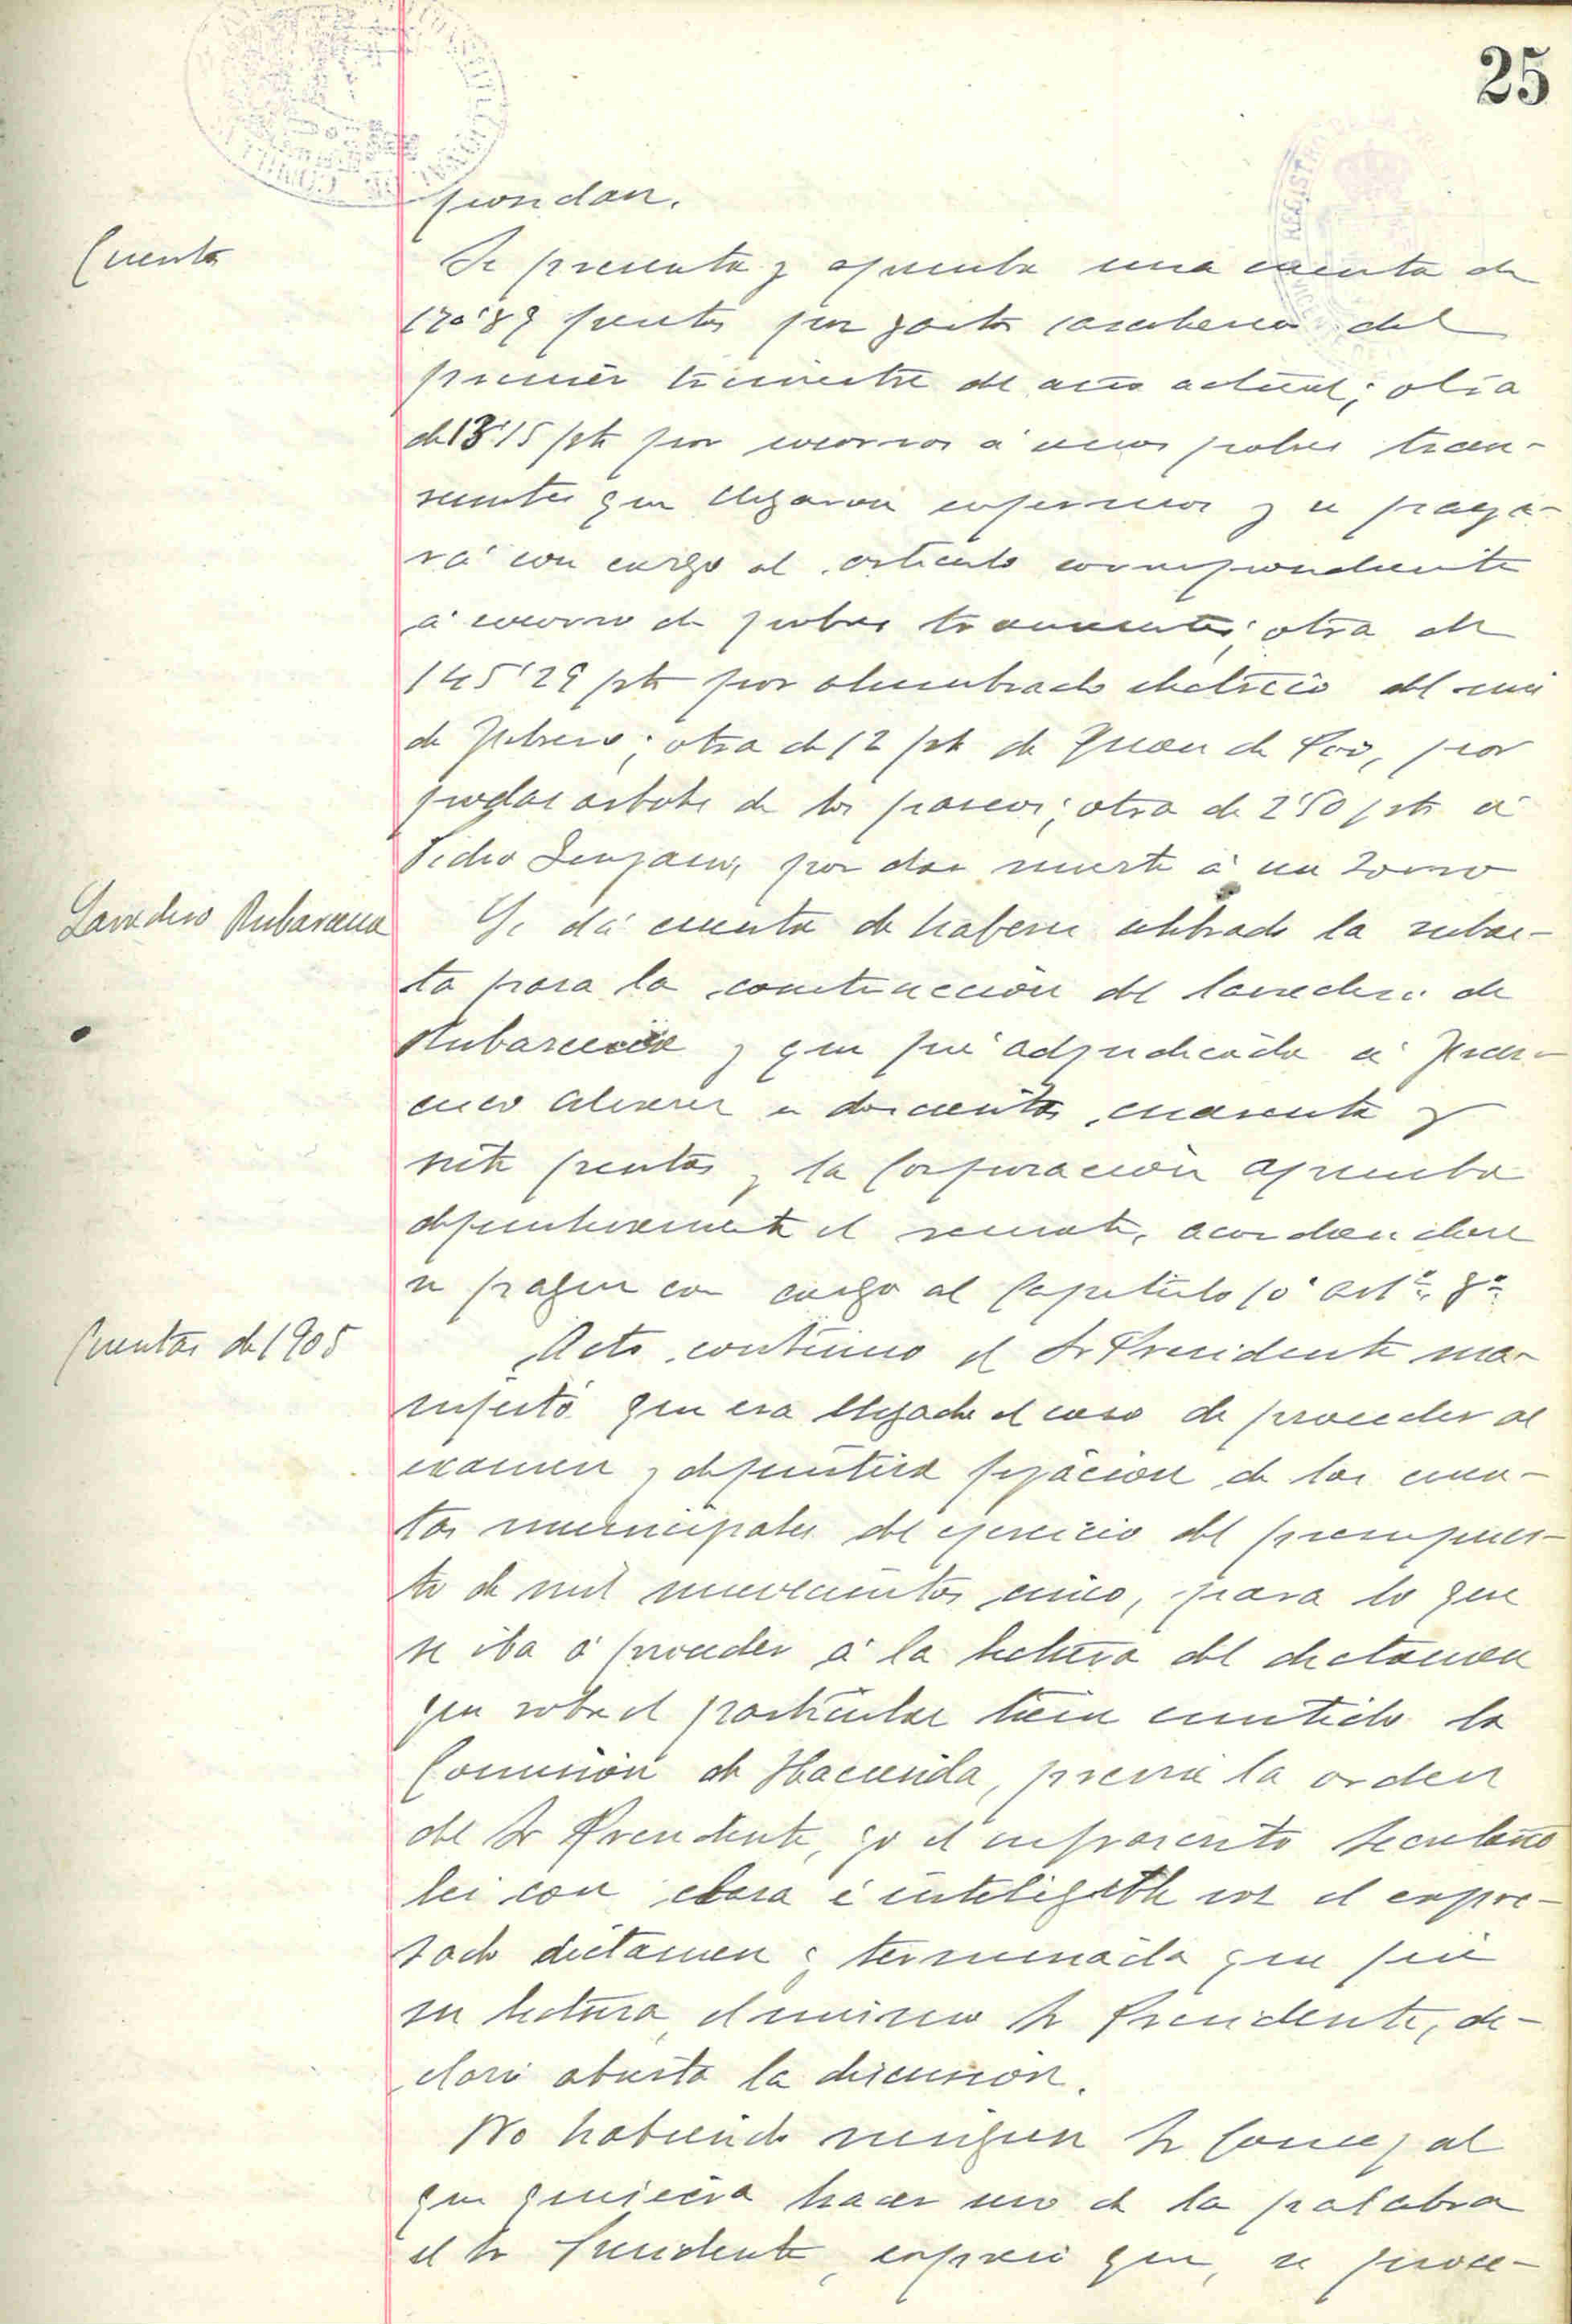 25
pondan.
Cuenta
Se presenta y aprueba una cuenta de
170'87 pesetas por gastos carcelarios del
primer trimestre del año actual; otra
de 13'15 pts por socorros á unos pobres tran-
seuntes que llegaron enfermos y se paga-
rá con cargo al articulo correspondiente
á socorro de pobres transeuntes; otra de
145'29 pts por alumbrado electrico del mes
de Febrero; otra de 12 pts de Juan de , por
podar arboles de los paseos; otra de 2'50 pts á
Pedro , por dar muerte á un zorro
Lavadero Rubarcena
Se dá cuenta de haberse celebrado la subas-
ta para la construccion del lavadero de
Rubarcena y que fué adjudicada á Fran-
cisco Alvarez en doscientas cuarenta y
siete pesetas y la Corporación aprueba
definitivamente el remate, acordandose
se pague con cargo al Capitulo artº
Cuentas de 1905
Acto continuo el Sr Presidente ma-
nifestó que era llegado el caso de proceder al
examen y definitiva fijación de las cuen-
tas municipales del ejercicio del presupues-
to de mil novecientos cinco, para lo que
se iba á proceder á la lectura del dictamen
que sobre el particular tiene emitido la
Comisión de Hacienda, previa la orden
del Sr Presidente, yo el infrascrito Secretario
lei con clara é inteligible voz el expre-
sado dictamen y terminada que fué
su lectura, el mismo Sr Presidente, de-
claró abierta la discusion.
No habiendo ningun Sr Concejal
que quisiera hacer uso de la palabra
el Sr Presidente, expresó que, se proce-